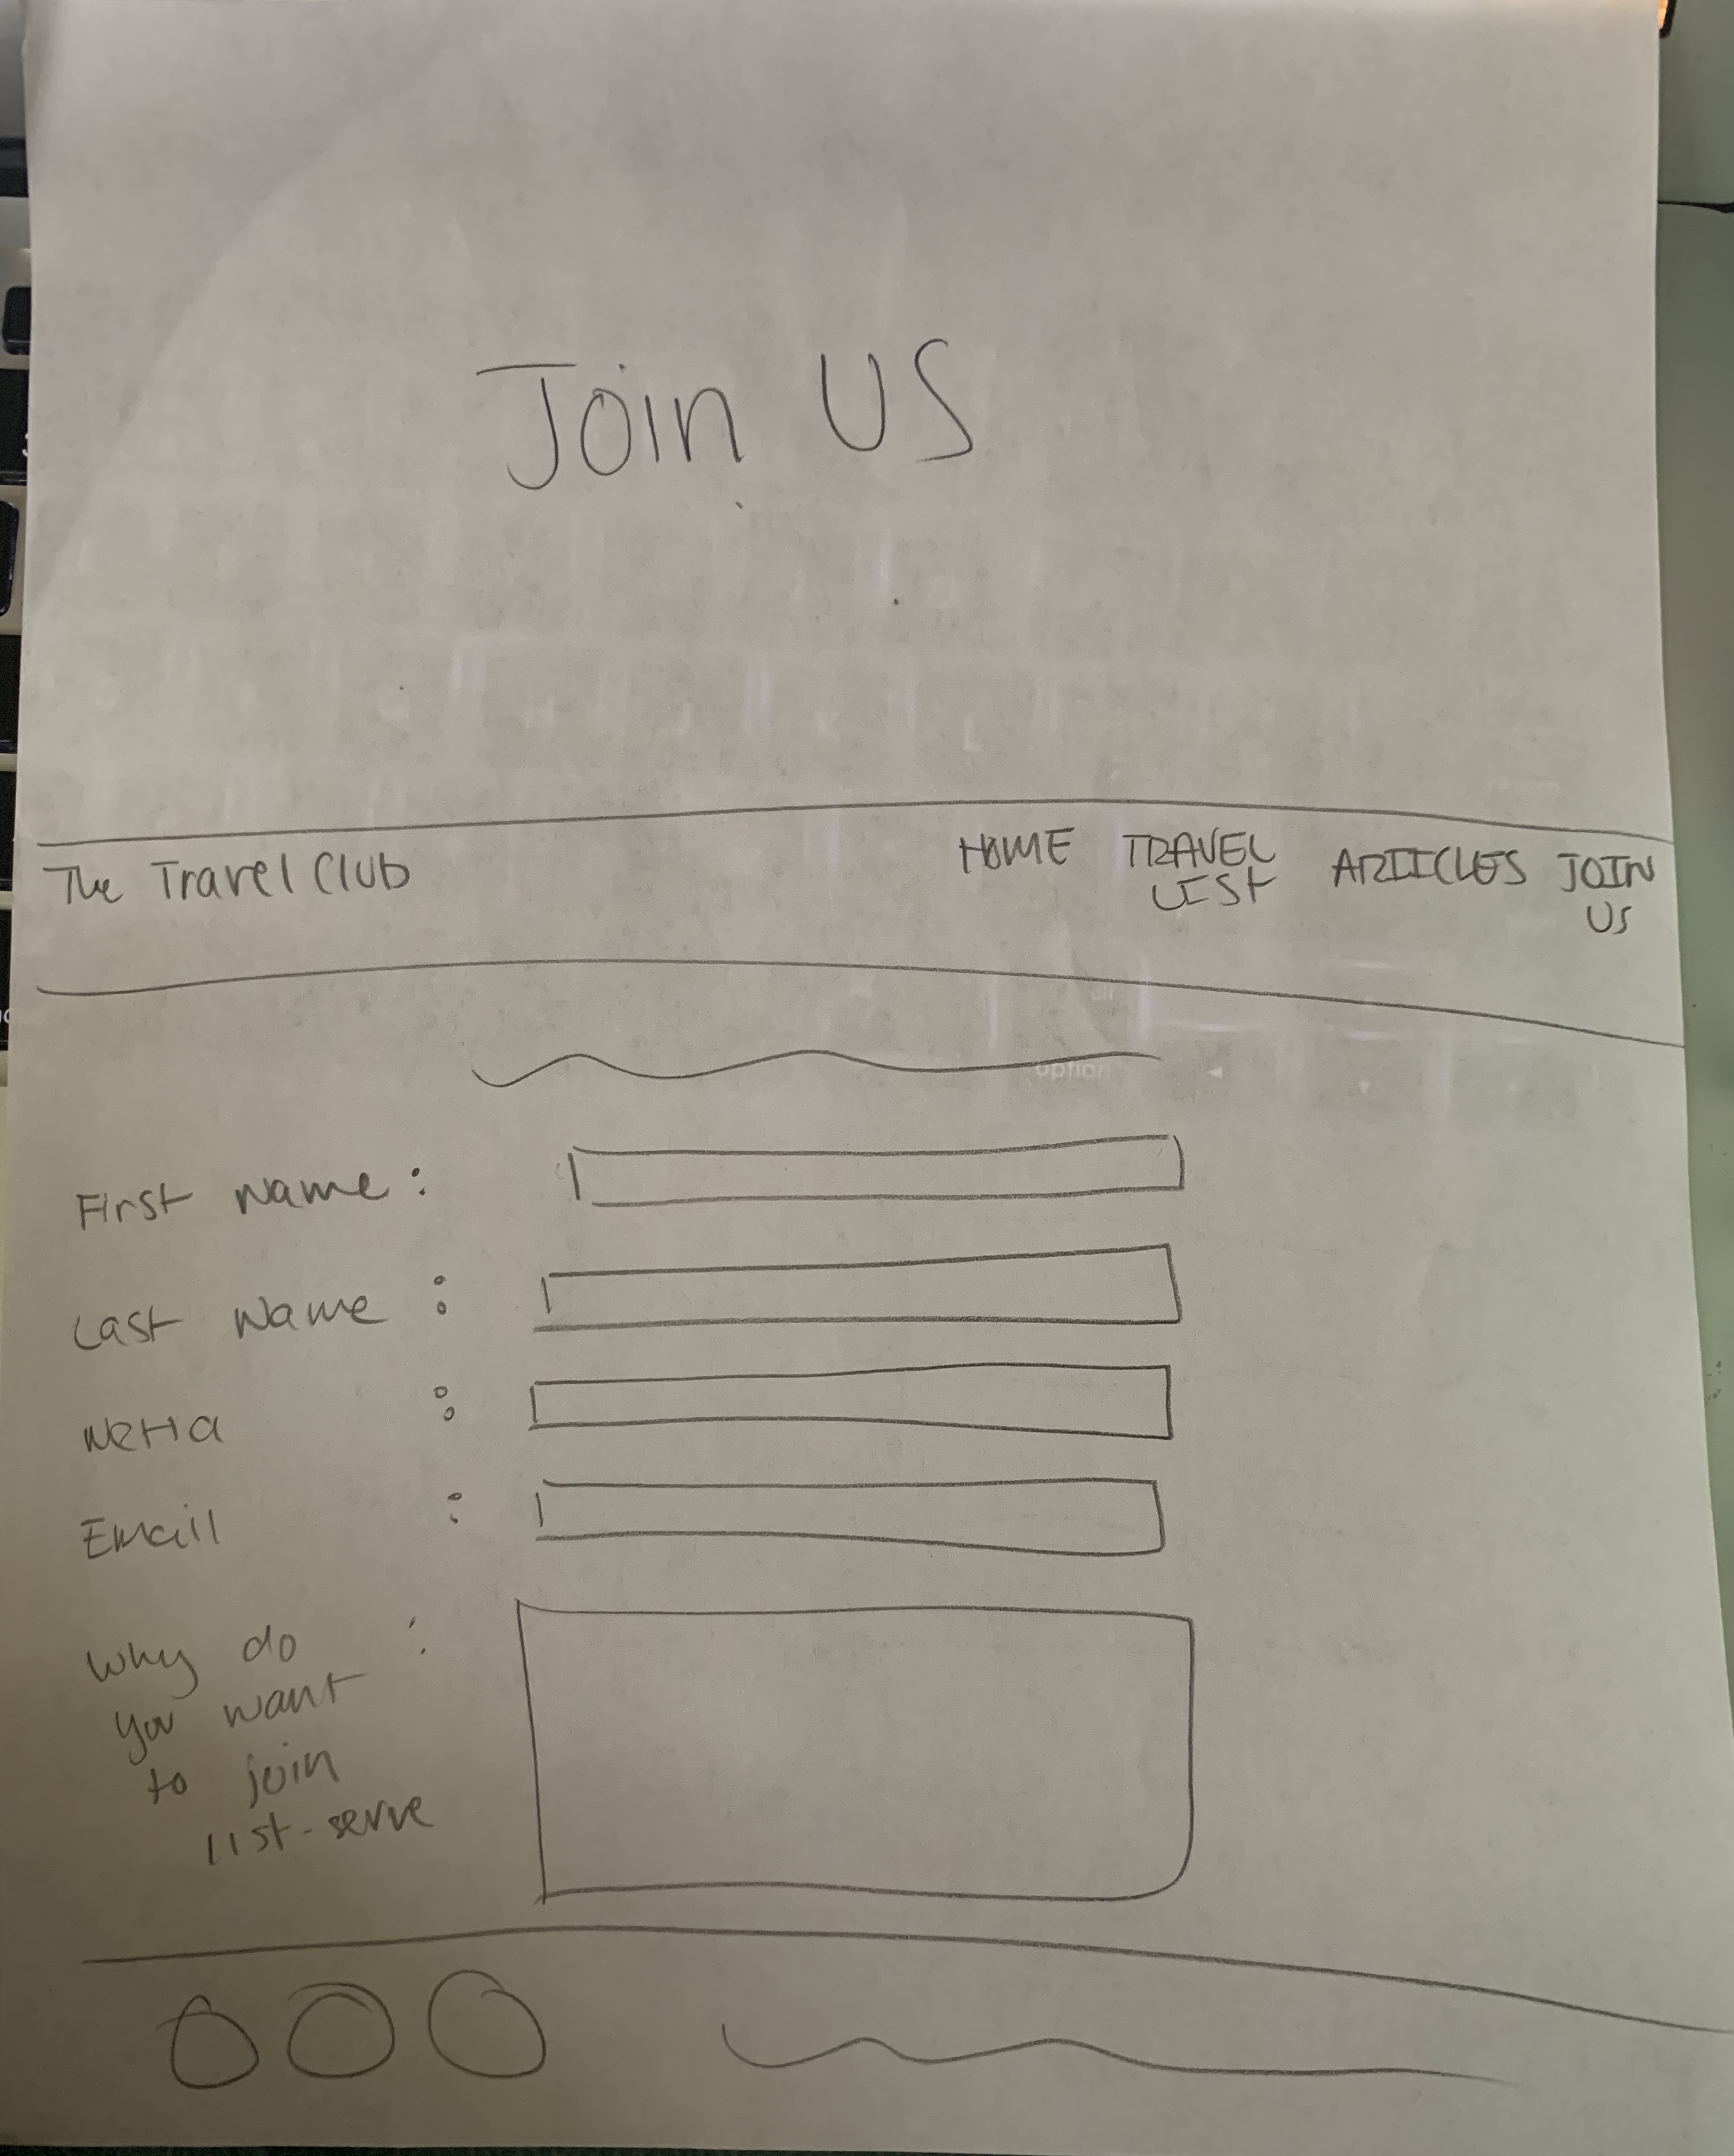 Join US
The Travel Club
HOME TRAVEL LIST ARTICLES JOIN US
First Name :
Last Name :
NetId :
Email :
Why do :
you want
to join
list-serve
option